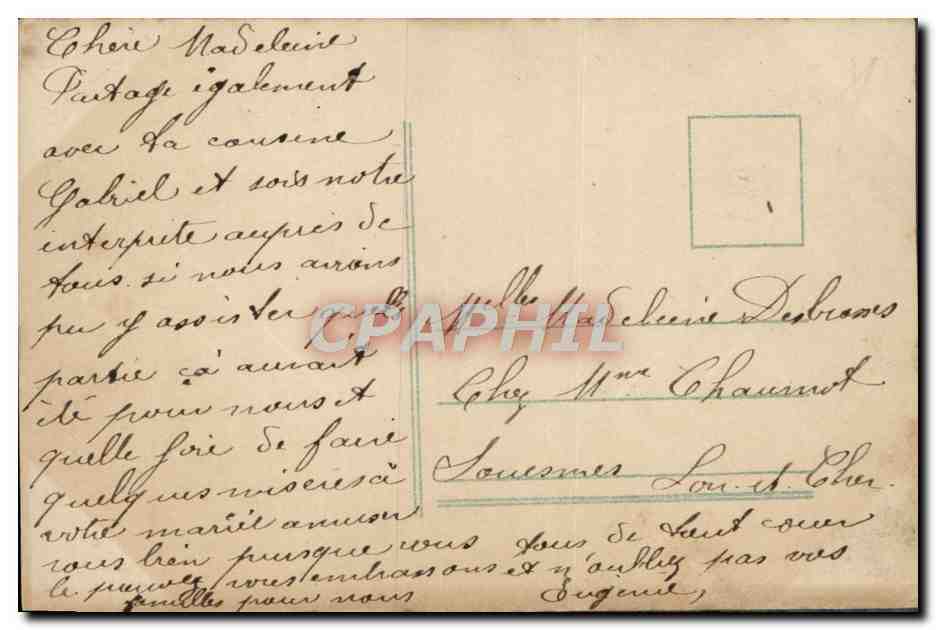 Chère Madeleine
Partage également
avec ta cousine
Gabriel et sois notre
interprète auprès de
tous. si nous avions
pu y assister quelle
partie ça aurait
été pour nous et
quelle joie de faire
quelques misères à
votre mariée amuser
vous bien puisque vous
le pouvez, vous embrassons et n'oubliez pas vos
familles pour nous
tous de tout coeur
Eugénie,
Melles Madeleine Desbrosses
Chez Mme Chaumot
Souesmes
Loir-et-Cher.
CPAPHIL